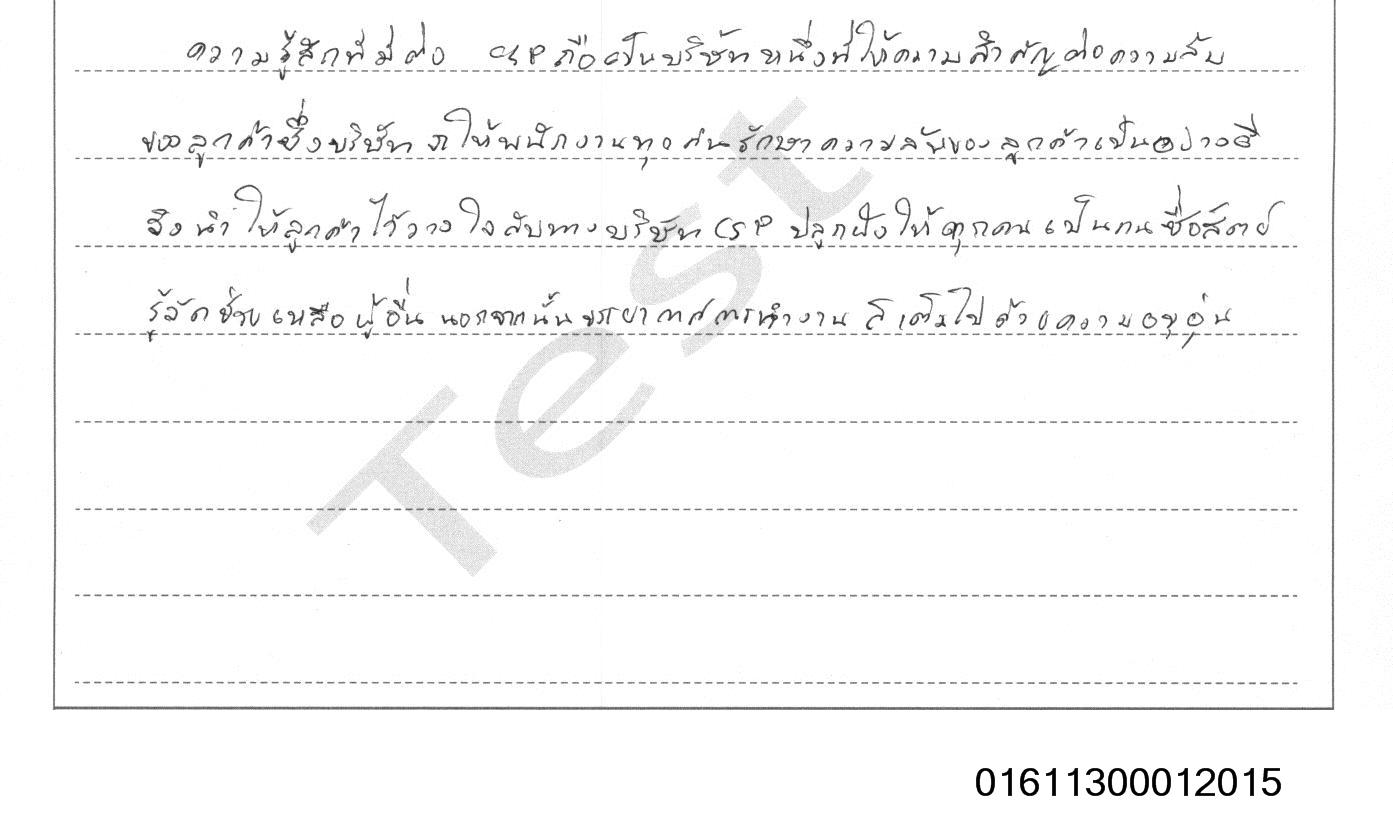 ความรู้สึกที่มีต่อ CSP ถือเป็นบริษัทหนึ่งที่ให้ความสำคัญต่อความลับ
ของลูกค้าซึ่งบริษัท ให้พนักงานทุกคนรักษาความลับของลูกค้าเป็นอย่างดี
จึงนำให้ลูกค้าไว้วางใจกับทางบริษัท CSP ปลูกฝังให้ทุกคนเป็นคนซื่อสัตย์
รู้จักช่วยเหลือผู้อื่น นอกจากนั้นบรรยากาศการทำงาน เต็มไปด้วยความอบอุ่น
Test
01611300012015